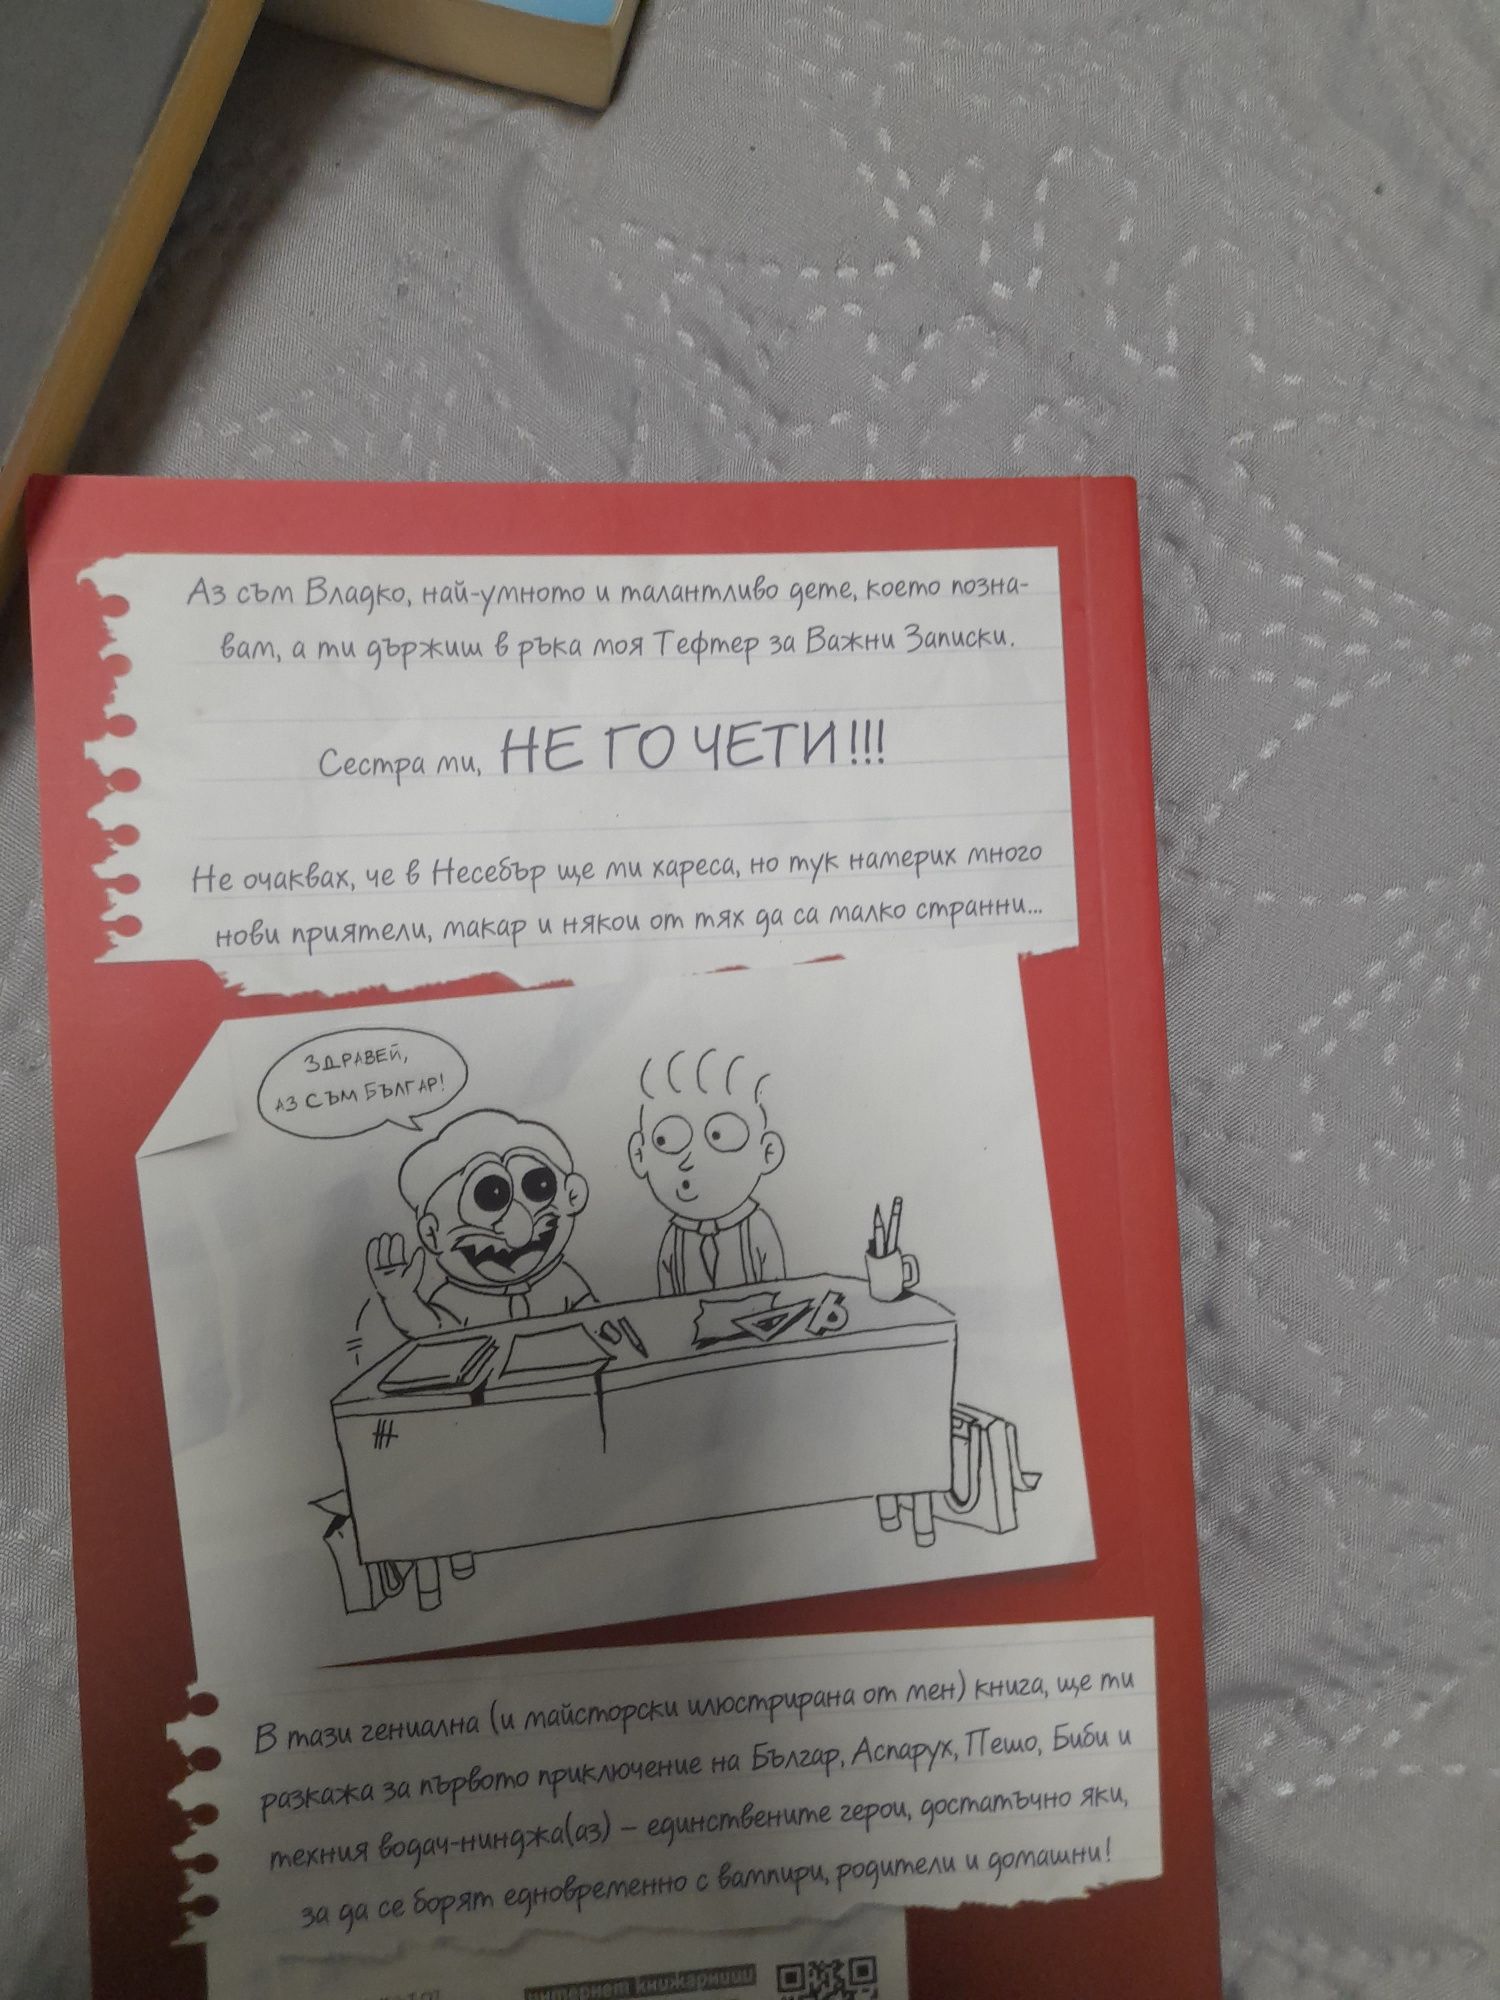 Аз съм Владко, най-умното и талантливо дете, което позна-
вам, а ти държиш в ръка моя Тефтер за Важни Записки.
Сестра ми, НЕ ГО ЧЕТИ!!!
Не очаквах, че в Несебър ще ми хареса, но тук намерих много
нови приятели, макар и някои от тях да са малко странни...
ЗДРАВЕЙ,
АЗ СЪМ БЪЛГАР!
В тази гениална (и майсторски илюстрирана от мен) книга, ще ти
разкажа за първото приключение на Българ, Аспарух, Пешо, Биби и
техния водач-нинджа(аз) – единствените герои, достатъчно яки,
за да се борят едновременно с вампири, родители и домашни!
интернет книжарници